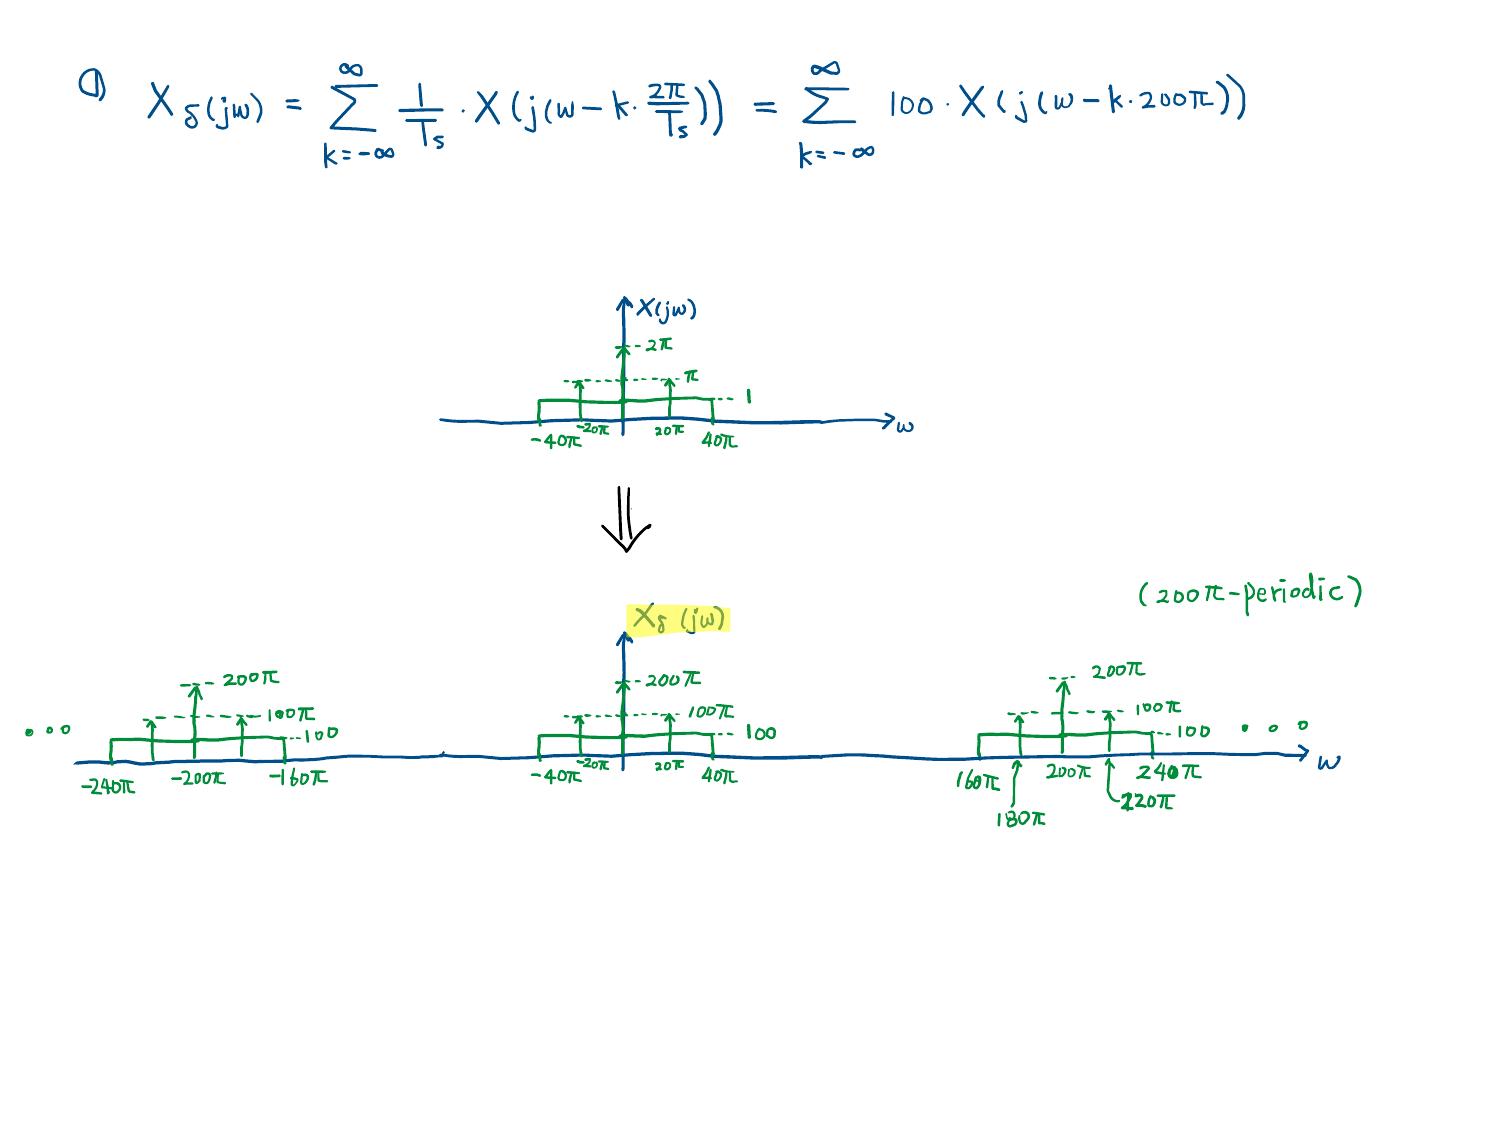 ① X_δ(jw) = ∑_{k=-∞}^{∞} 1/T_s · X(j(w-k·2π/T_s)) = ∑_{k=-∞}^{∞} 100·X(j(w-k·200π))
X(jw)
2π
π
1
-40π -20π 20π 40π w
(200π-periodic)
X_δ(jw)
200π 200π 200π
100π 100π 100π
100 100 100
-240π -200π -160π -40π -20π 20π 40π 160π 200π 240π w
180π 220π